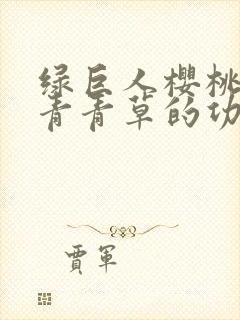 绿巨人樱桃
青青草的功
贾军